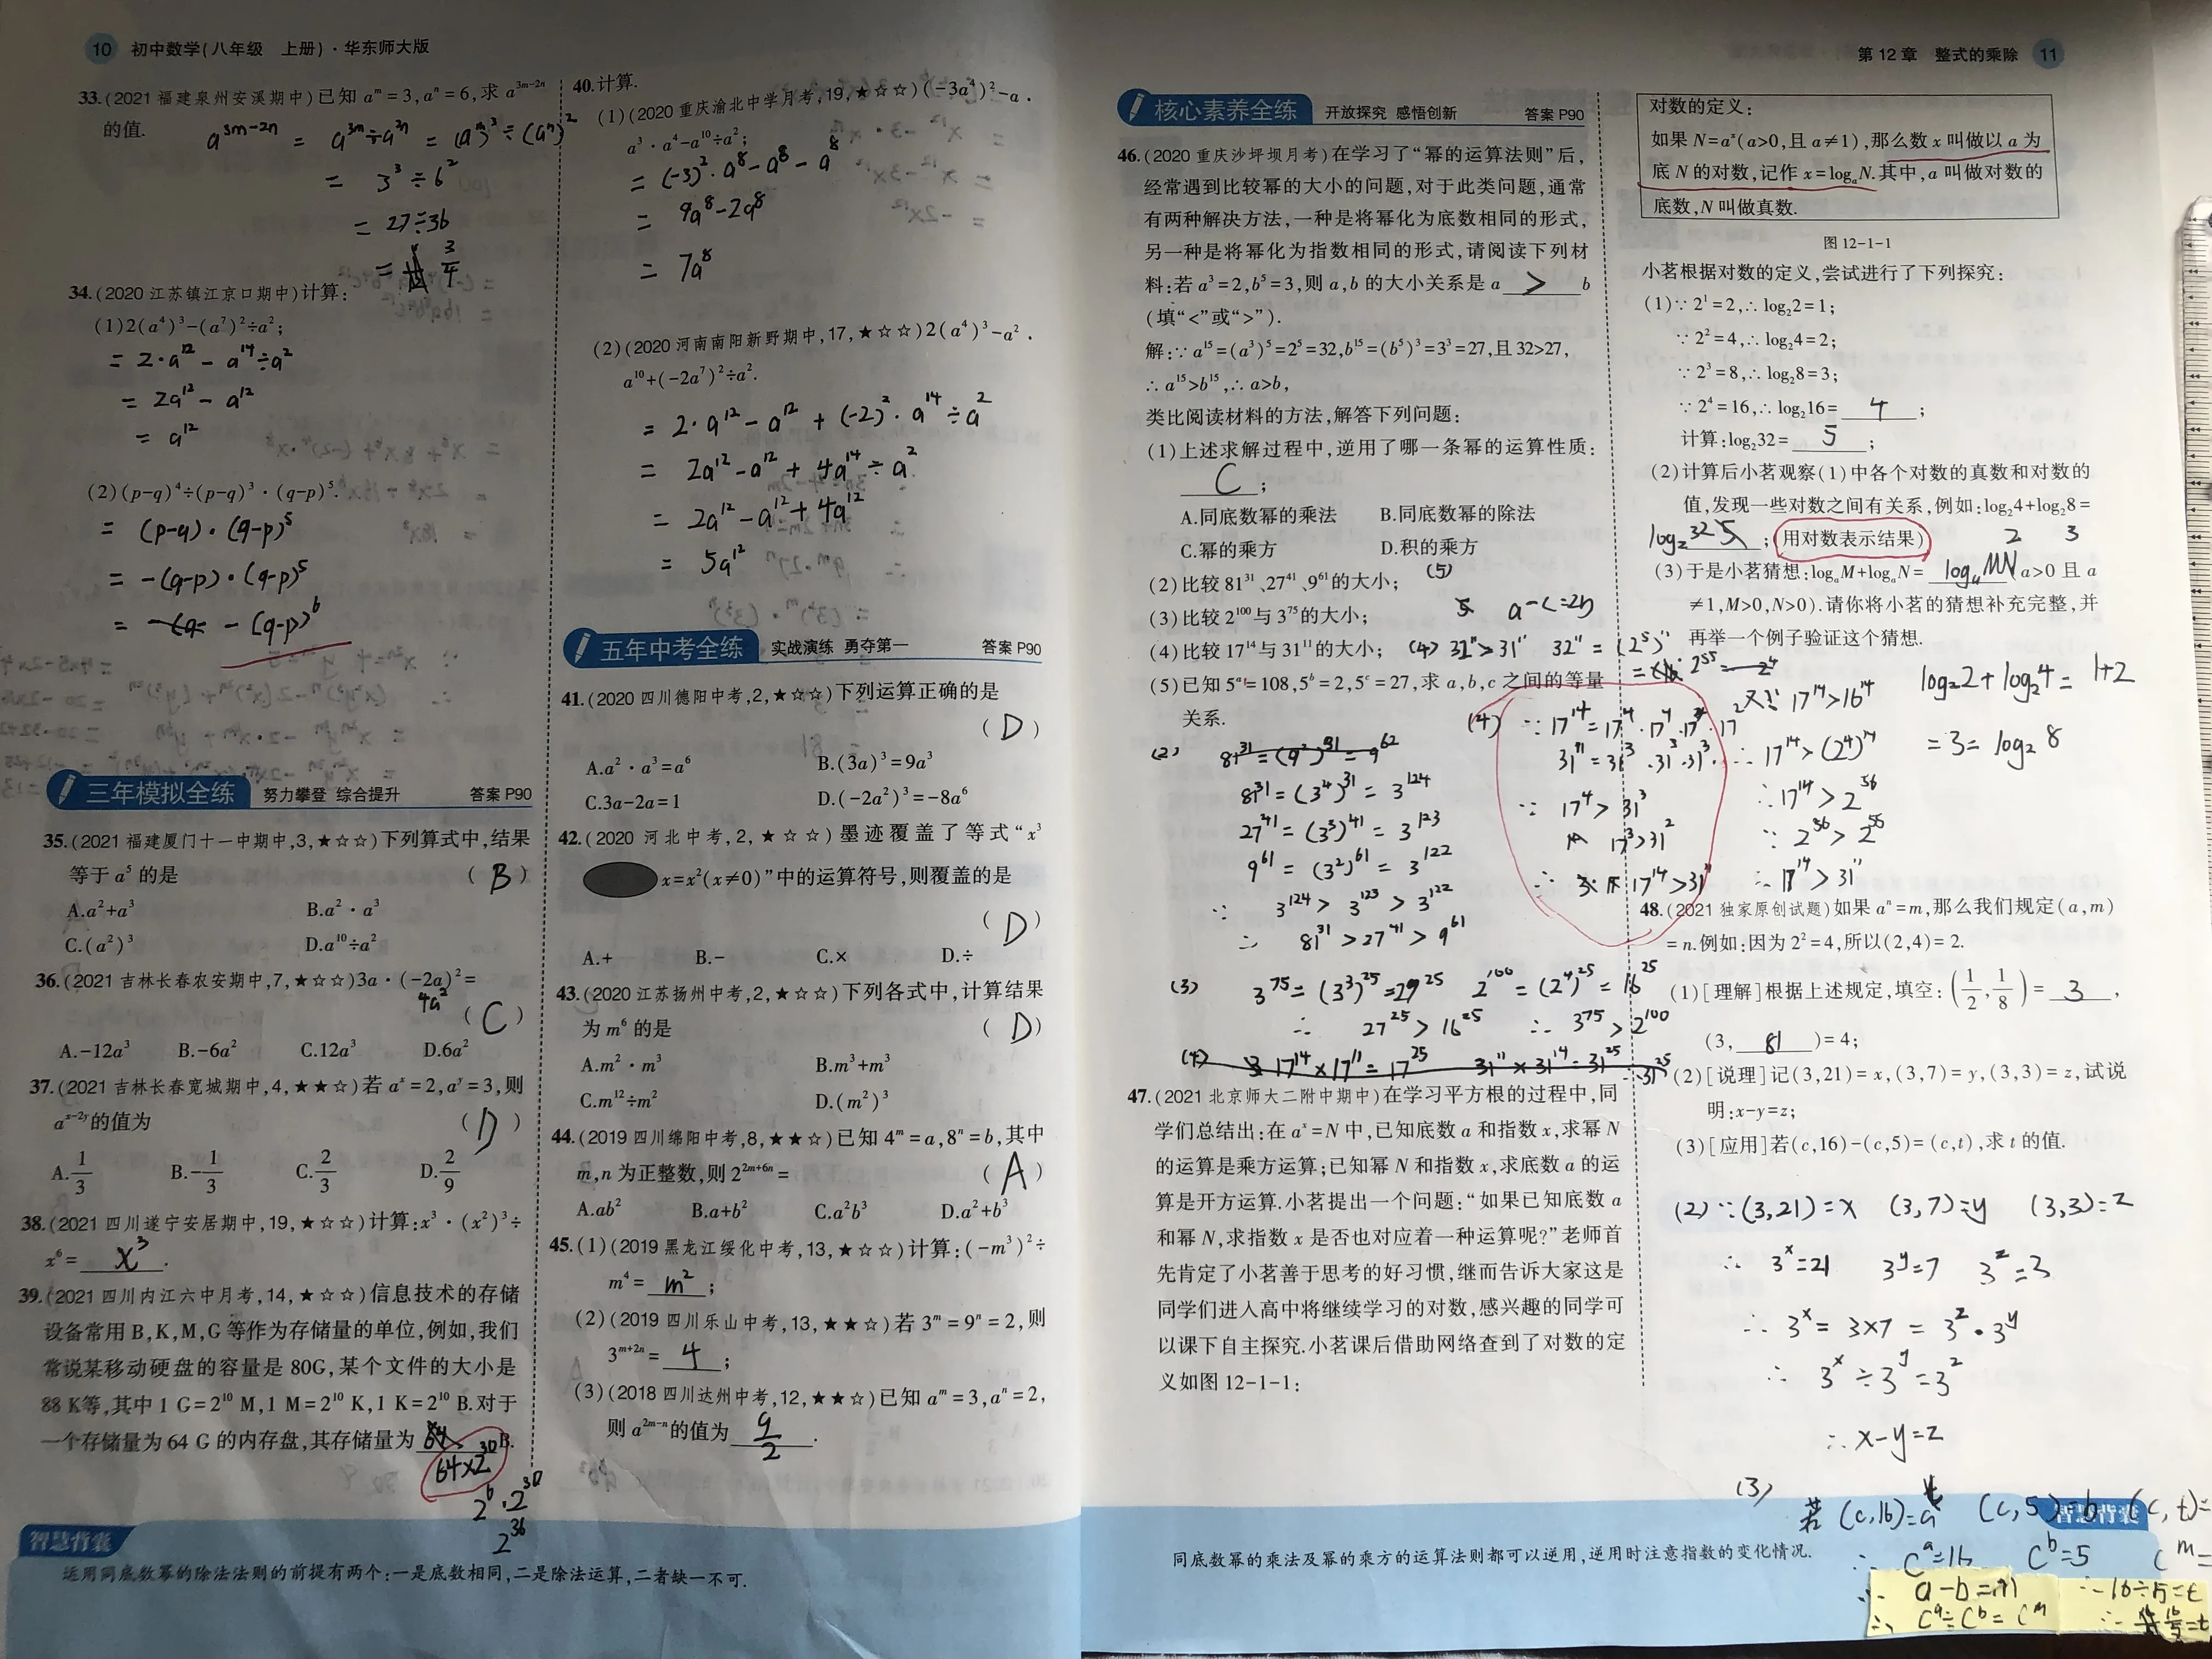 10 初中数学(八年级 上册)·华东师大版
33.(2021福建泉州安溪期中)已知a^m=3,a^n=6,求a^{3m-2n}
的值.
a^{3m-2n} = a^{3m}÷a^{2n} = (a^m)^3÷(a^n)^2
= 3^3÷6^2
= 27÷36
= 3/4
34.(2020江苏镇江京口期中)计算:
(1)2(a^4)^3-(a^7)^2÷a^2;
= 2·a^12 - a^14÷a^2
= 2a^12 - a^12
= a^12
(2)(p-q)^4÷(p-q)^3·(q-p)^5.
= (p-q)·(q-p)^5
= -(q-p)·(q-p)^5
= -(q-p)^6
三年模拟全练 努力攀登 综合提升 答案P90
35.(2021福建厦门十一中期中,3,★☆☆)下列算式中,结果
等于a^5的是 ( B )
A.a^2+a^3 B.a^2·a^3
C.(a^2)^3 D.a^10÷a^2
36.(2021吉林长春农安期中,7,★☆☆)3a·(-2a)^2=
4a^2 ( C )
A.-12a^3 B.-6a^2 C.12a^3 D.6a^2
37.(2021吉林长春宽城期中,4,★★☆)若a^x=2,a^y=3,则
a^{x-2y}的值为 ( D )
A.1/3 B.-1/3 C.2/3 D.2/9
38.(2021四川遂宁安居期中,19,★☆☆)计算:x^3·(x^2)^3÷
x^6= x^3 .
39.(2021四川内江六中月考,14,★☆☆)信息技术的存储
设备常用B,K,M,G等作为存储量的单位,例如,我们
常说某移动硬盘的容量是80G,某个文件的大小是
88 K等,其中1 G=2^10 M,1 M=2^10 K,1 K=2^10 B.对于
一个存储量为64 G的内存盘,其存储量为 B.
64×2^30
2^6·2^30
2^36
智慧背囊
运用同底数幂的除法法则的前提有两个:一是底数相同,二是除法运算,二者缺一不可.
40.计算.
(1)(2020重庆渝北中学月考,19,★☆☆)(-3a^4)^2-a·
a^3·a^4-a^10÷a^2;
= (-3)^2·a^8-a^8-a^8
= 9a^8-2a^8
= 7a^8
(2)(2020河南南阳新野期中,17,★☆☆)2(a^4)^3-a^2·
a^10+(-2a^7)^2÷a^2.
= 2·a^12 - a^12 + (-2)^2·a^14÷a^2
= 2a^12-a^12+4a^14÷a^2
= 2a^12-a^12+4a^12
= 5a^12
五年中考全练 实战演练 勇夺第一 答案P90
41.(2020四川德阳中考,2,★☆☆)下列运算正确的是
( D )
A.a^2·a^3=a^6 B.(3a)^3=9a^3
C.3a-2a=1 D.(-2a^2)^3=-8a^6
42.(2020河北中考,2,★☆☆)墨迹覆盖了等式“x^3
x=x^2(x≠0)”中的运算符号,则覆盖的是
( D )
A.+ B.- C.× D.÷
43.(2020江苏扬州中考,2,★☆☆)下列各式中,计算结果
为m^6的是 ( D )
A.m^2·m^3 B.m^3+m^3
C.m^12÷m^2 D.(m^2)^3
44.(2019四川绵阳中考,8,★★☆)已知4^m=a,8^n=b,其中
m,n为正整数,则2^{2m+6n}= ( A )
A.ab^2 B.a+b^2 C.a^2b^3 D.a^2+b^3
45.(1)(2019黑龙江绥化中考,13,★☆☆)计算:(-m^3)^2÷
m^4= m^2 ;
(2)(2019四川乐山中考,13,★★☆)若3^m=9^n=2,则
3^{m+2n}= 4 ;
(3)(2018四川达州中考,12,★★☆)已知a^m=3,a^n=2,
则a^{2m-n}的值为 9/2 .
第12章 整式的乘除 11
核心素养全练 开放探究 感悟创新 答案P90
46.(2020重庆沙坪坝月考)在学习了“幂的运算法则”后,
经常遇到比较幂的大小的问题,对于此类问题,通常
有两种解决方法,一种是将幂化为底数相同的形式,
另一种是将幂化为指数相同的形式,请阅读下列材
料:若a^3=2,b^5=3,则a,b的大小关系是a > b
(填“<”或“>”).
解:∵a^15=(a^3)^5=2^5=32,b^15=(b^5)^3=3^3=27,且32>27,
∴a^15>b^15,∴a>b,
类比阅读材料的方法,解答下列问题:
(1)上述求解过程中,逆用了哪一条幂的运算性质:
C ;
A.同底数幂的乘法 B.同底数幂的除法
C.幂的乘方 D.积的乘方
(2)比较81^31、27^41、9^61的大小; (5)
(3)比较2^100与3^75的大小; a-c=2b
(4)比较17^14与31^11的大小; (4) 32^11>31^11 32^11=(2^5)^11
(5)已知5^a=108,5^b=2,5^c=27,求a,b,c之间的等量
关系.
(2) 81^31=(9^2)^31=9^62
81^31=(3^4)^31=3^124
27^41=(3^3)^41=3^123
9^61=(3^2)^61=3^122
∵ 3^124>3^123>3^122
∴ 81^31>27^41>9^61
(4) ∵17^14=17^4·17^4·17^4·17^2
31^11=31^3·31^3·31^3·
∵ 17^4>31^3
17^3>31^2
∴ 17^14>31^11
=2^55
又∵17^14>16^14
∴17^14>(2^4)^14
∴17^14>2^56
∵2^56>2^55
∴17^14>31^11
(3) 3^75=(3^3)^25=27^25 2^100=(2^4)^25=16^25
∴ 27^25>16^25 ∴3^75>2^100
(4) 17^14×17^11=17^25 31^11×31^14=31^25
47.(2021北京师大二附中期中)在学习平方根的过程中,同
学们总结出:在a^x=N中,已知底数a和指数x,求幂N
的运算是乘方运算;已知幂N和指数x,求底数a的运
算是开方运算.小茗提出一个问题:“如果已知底数a
和幂N,求指数x是否也对应着一种运算呢?”老师首
先肯定了小茗善于思考的好习惯,继而告诉大家这是
同学们进入高中将继续学习的对数,感兴趣的同学可
以课下自主探究.小茗课后借助网络查到了对数的定
义如图12-1-1:
同底数幂的乘法及幂的乘方的运算法则都可以逆用,逆用时注意指数的变化情况.
对数的定义:
如果N=a^x(a>0,且a≠1),那么数x叫做以a为
底N的对数,记作x=log_aN.其中,a叫做对数的
底数,N叫做真数.
图12-1-1
小茗根据对数的定义,尝试进行了下列探究:
(1)∵2^1=2,∴log_22=1;
∵2^2=4,∴log_24=2;
∵2^3=8,∴log_28=3;
∵2^4=16,∴log_216= 4 ;
计算:log_232= 5 ;
(2)计算后小茗观察(1)中各个对数的真数和对数的
值,发现一些对数之间有关系,例如:log_24+log_28=
log_232 ;(用对数表示结果) 2 3
(3)于是小茗猜想:log_aM+log_aN= log_aMN (a>0且a
≠1,M>0,N>0).请你将小茗的猜想补充完整,并
再举一个例子验证这个猜想.
log_22+log_24=1+2
=3=log_28
48.(2021独家原创试题)如果a^n=m,那么我们规定(a,m)
=n.例如:因为2^2=4,所以(2,4)=2.
(1)[理解]根据上述规定,填空:(1/2,1/8)= 3 ,
(3, 81 )=4;
(2)[说理]记(3,21)=x,(3,7)=y,(3,3)=z,试说
明:x-y=z;
(3)[应用]若(c,16)-(c,5)=(c,t),求t的值.
(2)∵(3,21)=x (3,7)=y (3,3)=z
∴ 3^x=21 3^y=7 3^z=3
∴ 3^x=3×7=3^z·3^y
∴ 3^x÷3^y=3^z
∴x-y=z
(3)
若(c,16)=a (c,5)=b (c,t)=
∴ c^a=16 c^b=5 c^m=
∴ a-b=m ∴16÷5=t
∴ c^a÷c^b=c^m ∴ 16/5=t
智慧背囊